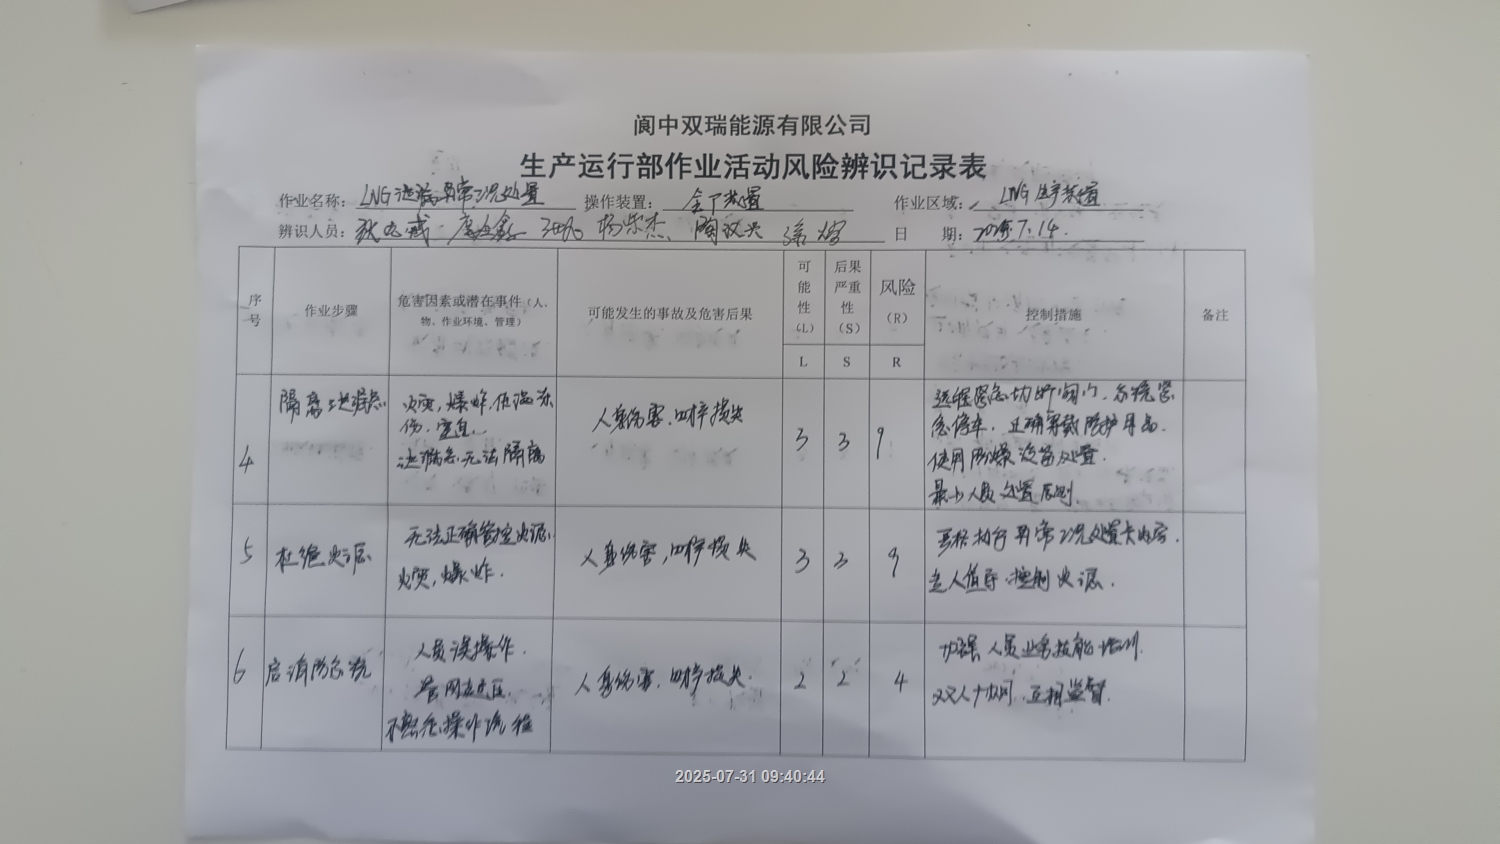 阆中双瑞能源有限公司
生产运行部作业活动风险辨识记录表
作业名称: LNG泄漏异常工况处置 操作装置: 全厂装置 作业区域: LNG生产装置
辨识人员: 杨荣杰、陶汉兴 日 期: 2025.7.14.
序号 作业步骤 危害因素或潜在事件(人、物、作业环境、管理) 可能发生的事故及危害后果 可能性(L) 后果严重性(S) 风险(R) 控制措施 备注
L S R
4 隔离泄漏点 火灾,爆炸,低温冻伤,窒息. 泄漏点无法隔离 人身伤害,财产损失 3 3 9 远程紧急切断阀门、系统紧急停车,正确穿戴防护用品. 使用防爆设备处置. 最少人员处置原则.
5 杜绝火源 无法正确管控火源,火灾,爆炸. 人身伤害,财产损失 3 3 9 严格执行异常工况处置卡内容. 专人值守,控制火源.
6 启消防系统 人员误操作. 管网未建压. 不熟悉操作流程 人身伤害,财产损失. 2 2 4 加强人员业务技能培训. 双人协同,互相监督.
2025-07-31 09:40:44